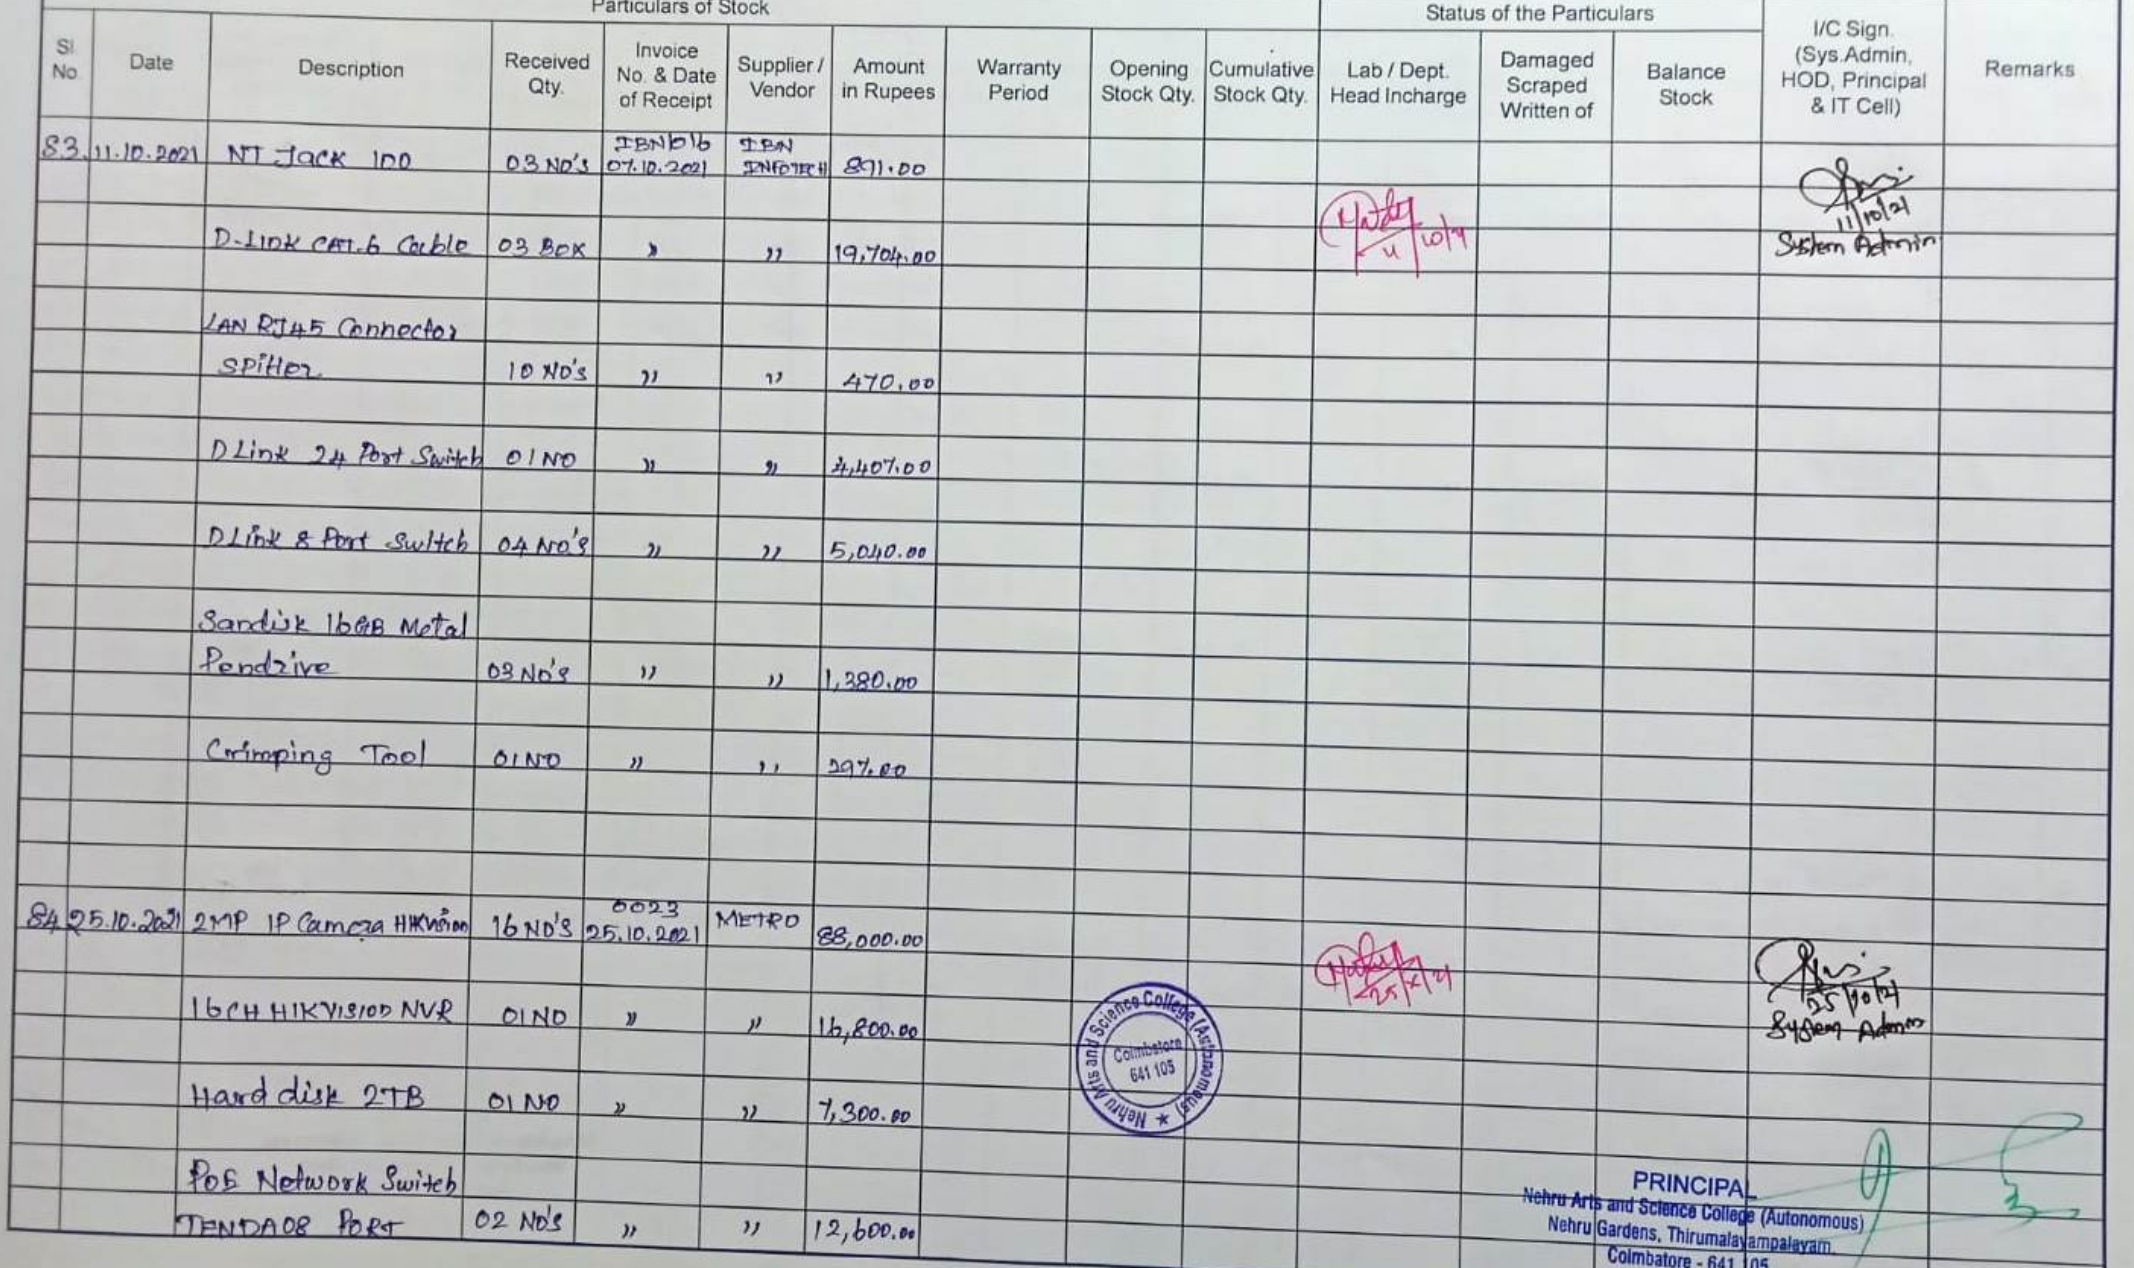 Particulars of Stock
Status of the Particulars
Sl. No
Date
Description
Received Qty.
Invoice No. & Date of Receipt
Supplier / Vendor
Amount in Rupees
Warranty Period
Opening Stock Qty.
Cumulative Stock Qty.
Lab / Dept. Head Incharge
Damaged Scraped Written of
Balance Stock
I/C Sign. (Sys.Admin, HOD, Principal & IT Cell)
Remarks
IBN1016 IBN
83. 11.10.2021 NT Jack 100 03 NO's 07.10.2021 INFOTECH 891.00
11/10/21
System Admin
D-Link CAT.6 Cable 03 BOX " " 19,704.00
LAN RJ45 Connector
Spitter 10 NO's " " 470.00
D Link 24 Port Switch 01 NO " " 4,407.00
D Link 8 Port Switch 04 NO's " " 5,040.00
Sandisk 16GB Metal
Pendrive 03 NO's " " 1,380.00
Crimping Tool 01 NO " " 297.00
0023
84 25.10.2021 2MP IP Camera HIKVision 16 NO's 25.10.2021 METRO 88,000.00
25/10/21
System Admin
16CH HIKVISION NVR 01 NO " " 16,800.00
Hard disk 2TB 01 NO " " 7,300.00
POE Network Switch
TENDA08 PORT 02 NO's " " 12,600.00
Nehru Arts and Science College (Autonomous)
Coimbatore
641 105
PRINCIPAL
Nehru Arts and Science College (Autonomous)
Nehru Gardens, Thirumalayampalayam
Coimbatore - 641 105